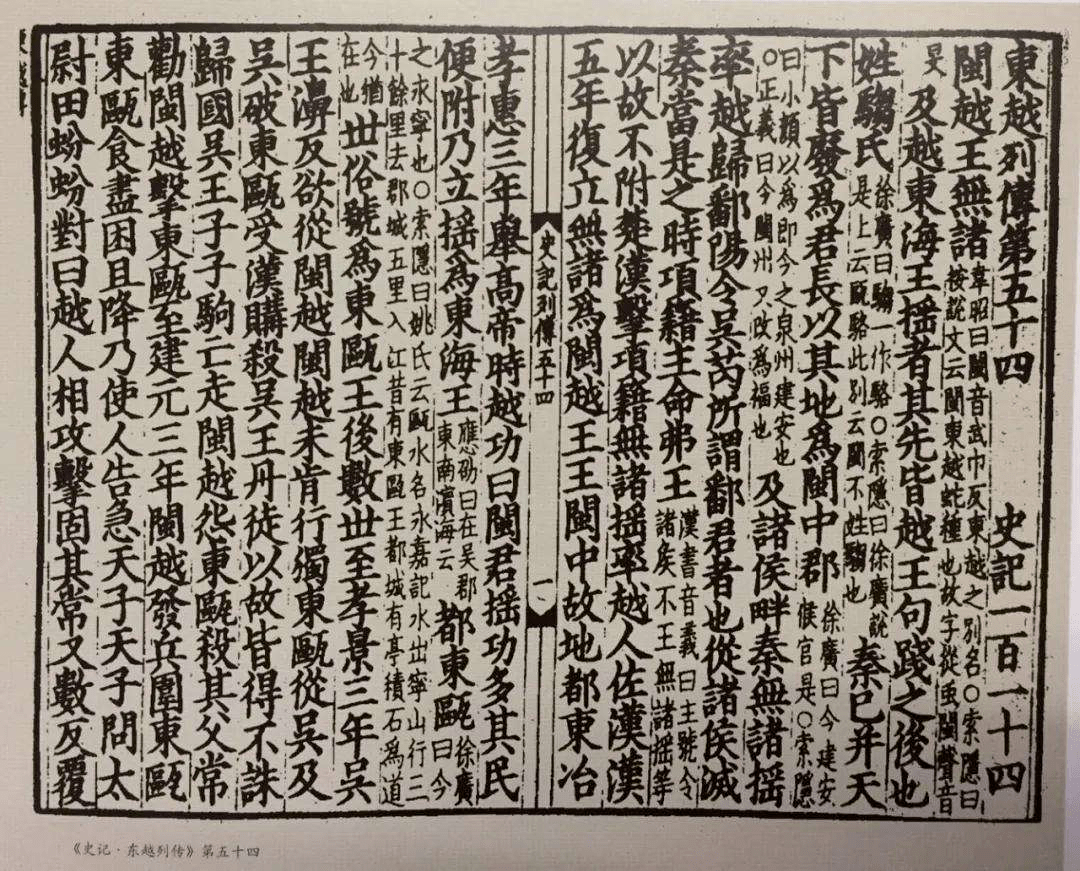 東越列傳第五十四　史記一百一十四
閩越王無諸韋昭曰閩音武巾反東越之別名○索隱曰按說文云閩東越蛇種也故字從虫閩聲音
旻及越東海王搖者其先皆越王句踐之後也
姓騶氏徐廣曰騶一作駱○索隱曰徐廣說是上云甌駱此別云閩不姓騶也秦已并天
下皆廢爲君長以其地爲閩中郡徐廣曰今建安候官是○索隱
曰小顏以爲即今之泉州建安也○正義曰今閩州又改爲福也及諸侯畔秦無諸搖
率越歸鄱陽令吳芮所謂鄱君者也從諸侯滅
秦當是之時項籍主命弗王漢書音義曰主號令諸侯不王無諸搖等
以故不附楚漢擊項籍無諸搖率越人佐漢漢
五年復立無諸爲閩越王王閩中故地都東冶
史記列傳五十四　一
孝惠三年舉髙帝時越功曰閩君搖功多其民
便附乃立搖爲東海王應劭曰在吳郡東南濱海云都東甌徐廣曰今
之永寧也○索隱曰姚氏云甌水名永嘉記水出寧山行三十餘里去郡城五里入江昔有東甌王都城有亭積石爲道
今猶在也世俗號爲東甌王後數世至孝景三年吳
王濞反欲從閩越閩越未肯行獨東甌從吳及
吳破東甌受漢購殺吳王丹徒以故皆得不誅
歸國吳王子子駒亡走閩越怨東甌殺其父常
勸閩越擊東甌至建元三年閩越發兵圍東甌
東甌食盡困且降乃使人告急天子天子問太
尉田蚡蚡對曰越人相攻擊固其常又數反覆
《史记·东越列传》第五十四